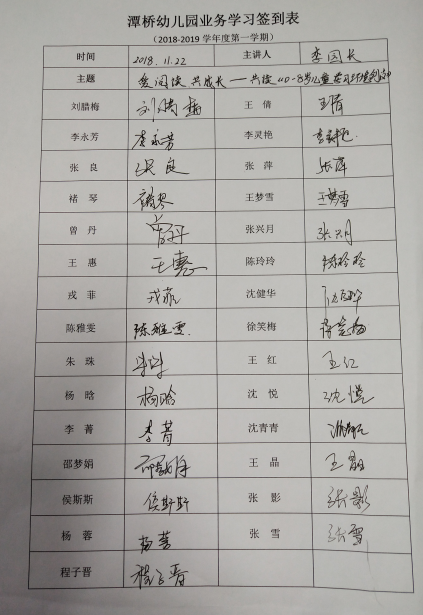 潭桥幼儿园业务学习签到表
（2018-2019 学年度第一学期）
时间 2018.11.22 主讲人 李园长
主题 爱阅读 共成长——共读《0-8岁儿童
刘腊梅 刘腊梅 王倩 王倩
李永芳 李永芳 李灵艳 李灵艳
张良 张良 张萍 张萍
褚琴 褚琴 王梦雪 王梦雪
曾丹 曾丹 张兴月 张兴月
王惠 王惠 陈玲玲 陈玲玲
戎菲 戎菲 沈健华 沈健华
陈雅雯 陈雅雯 徐笑梅 徐笑梅
朱珠 朱珠 王红 王红
杨晗 杨晗 沈悦 沈悦
李菁 李菁 沈青青 沈青青
邵梦娟 邵梦娟 王晶 王晶
侯斯斯 侯斯斯 张影 张影
杨蓉 杨蓉 张雪 张雪
程子晋 程子晋